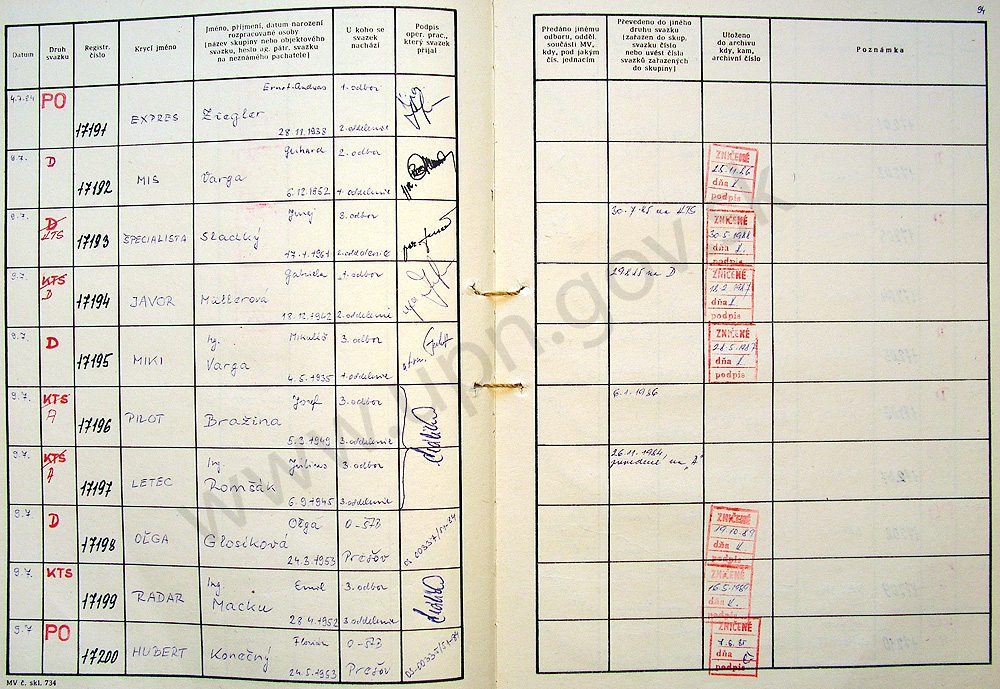 94
Datum
Druh svazku
Registr. číslo
Krycí jméno
Jméno, příjmení, datum narození
rozpracované osoby
[název skupiny nebo objektového
svazku, heslo ag. pátr. svazku
na neznámého pachatele]
U koho se
svazek
nachází
Podpis
oper. prac.,
který svazek
přijal
Předáno jinému
odboru, odděl.
součásti MV,
kdy, pod jakým
čís. jednacím
Převedeno do jiného
druhu svazku
[zařazen do skup.
svazku číslo
nebo uvést čísla
svazků zařazených
do skupiny]
Uloženo
do archivu
kdy, kam,
archivní číslo
Poznámka
4.7.84 PO 17191 EXPRES Ernst-Andreas 1. odbor
Ziegler
28.11.1938 2. oddelenie
9.7. D 17192 MIS Gerhard 2. odbor
Varga
6.12.1952 1. oddelenie
ZNIČENÉ
dňa
podpis
9.7. D KTS 17193 ŠPECIALISTA Juraj 2. odbor
Sladký
17.1.1961 2. oddelenie
30.7.85 na KTS
ZNIČENÉ
30.5.1988
dňa
podpis
9.7. KTS D 17194 JAVOR Gabriela 2. odbor
Müllerová
18.12.1942 2. oddelenie
29.8.85 na D
ZNIČENÉ
18.2.1987
dňa
podpis
9.7. D 17195 MIKI Ing. Mikuláš 3. odbor
Varga
4.5.1935 1. oddelenie
ZNIČENÉ
28.5.1987
dňa
podpis
9.7. KTS A 17196 PILOT Jozef 3. odbor
Bražina
5.2.1949 3. oddelenie
6.1.1986
9.7. KTS A 17197 LETEC Ing. Július 3. odbor
Romšák
6.9.1945 3. oddelenie
26.11.1984,
prevedené na „A"
9.7. D 17198 OĽGA Oľga O-ŠTB
Glosíková
24.3.1953 Prešov
ZNIČENÉ
19.10.89
dňa
podpis
9.7. KTS 17199 RADAR Ing. Emil 3. odbor
Macku
28.4.1952 3. oddelenie
ZNIČENÉ
16.5.1989
dňa
podpis
9.7 PO 17200 HUBERT Florián O-ŠTB
Konečný
24.5.1953 Prešov
ZNIČENÉ
dňa
podpis
MV č. skl. 734
www.upn.gov.sk